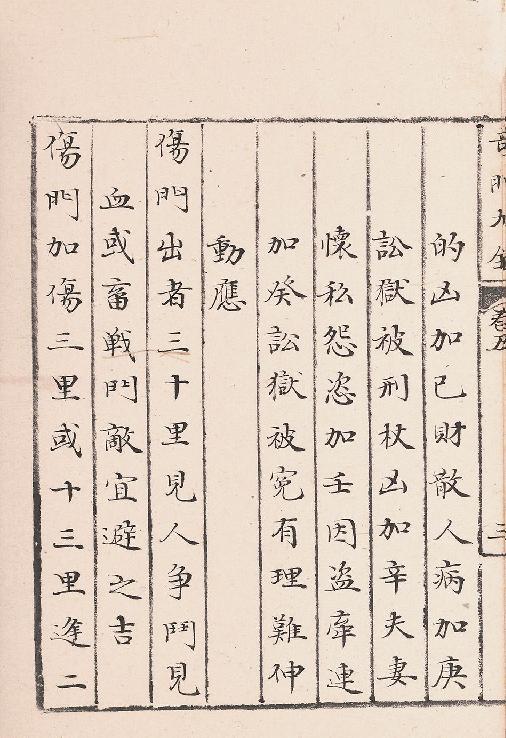 的凶加己財散人病加庚
訟獄被刑杖凶加辛夫妻
懷私怨恣加壬因盗牽連
加癸訟獄被冤有理難伸
動應
傷門出者三十里見人争鬥見
血或畜戦鬥敵宜避之吉
傷門加傷三里或十三里逢二